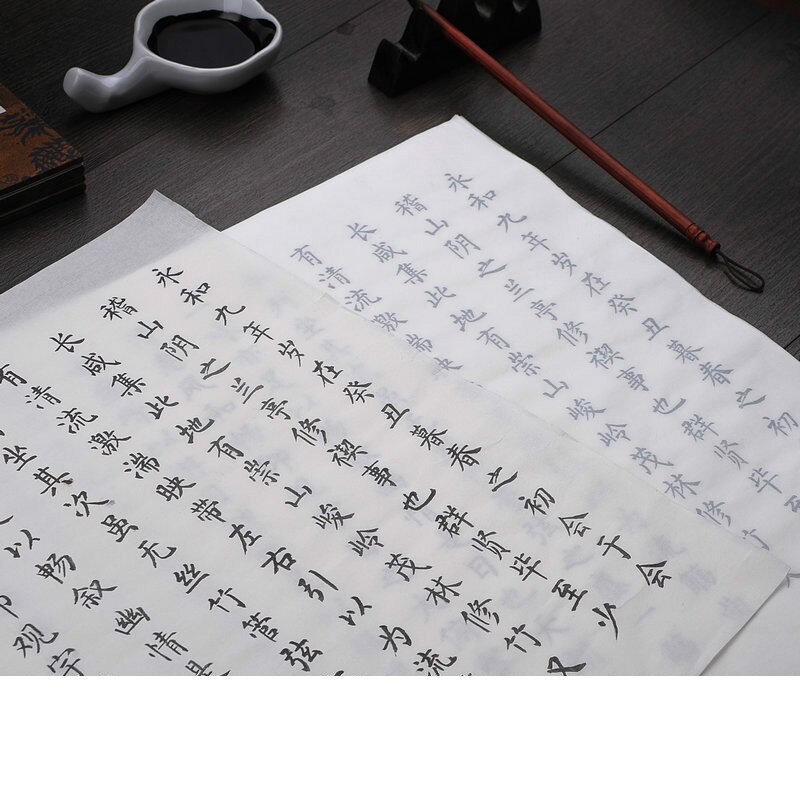 永和九年岁在癸丑暮春之初会于会
稽山阴之兰亭修禊事也群贤毕至少
长咸集此地有崇山峻岭茂林修竹又
有清流激湍映带左右引以为流
坐其次虽无丝竹管弦
以畅叙幽情是
观宇
永和九年岁在癸丑暮春之初
稽山阴之兰亭修禊事也群贤毕至
长咸集此地有崇山峻岭茂林修
有清流激湍映